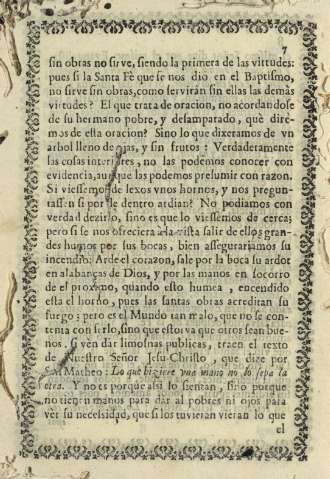 7
sin obras no sirve, siendo la primera de las virtudes:
pues si la Santa Fè que se nos diò en el Baptismo,
no sirve sin obras, como servirán sin ellas las demàs
virtudes? El que trata de oracion, no acordandose
de su hermano pobre, y desamparado, què dirè-
mos de esta oracion? Sino lo que dixeramos de vn
arbol lleno de ojas, y sin frutos: Verdaderamente
las cosas interiores, no las podemos conocer con
evidencia, aunque las podemos presumir con razon.
Si viessemos de lexos vnos hornos, y nos pregun-
tassen si por de dentro ardian? No podiamos con
verdad dezirlo, sino es que lo viessemos de cerca;
pero si se nos ofreciera à la vista salir de ellos gran-
des humos por sus bocas, bien assegurariamos su
incendio: Arde el corazon, sale por la boca su ardor
en alabanças de Dios, y por las manos en socorro
de el proximo, quando esto humea, encendido
està el horno, pues las santas obras acreditan su
fuego; pero es el Mundo tan malo, que no se con-
tenta con serlo, sino que estorva que otros sean bue-
nos, si ven dàr limosnas publicas, traen el texto
de Nuestro Señor Jesu-Christo, que dize por
S. Matheo: Lo que hiziere vna mano no lo sepa la
otra. Y no es porque assi lo sientan, sino porque
no tienen manos para dàr al pobres ni ojos para
vèr su necessidad, que si los tuvieran vieran lo que
el